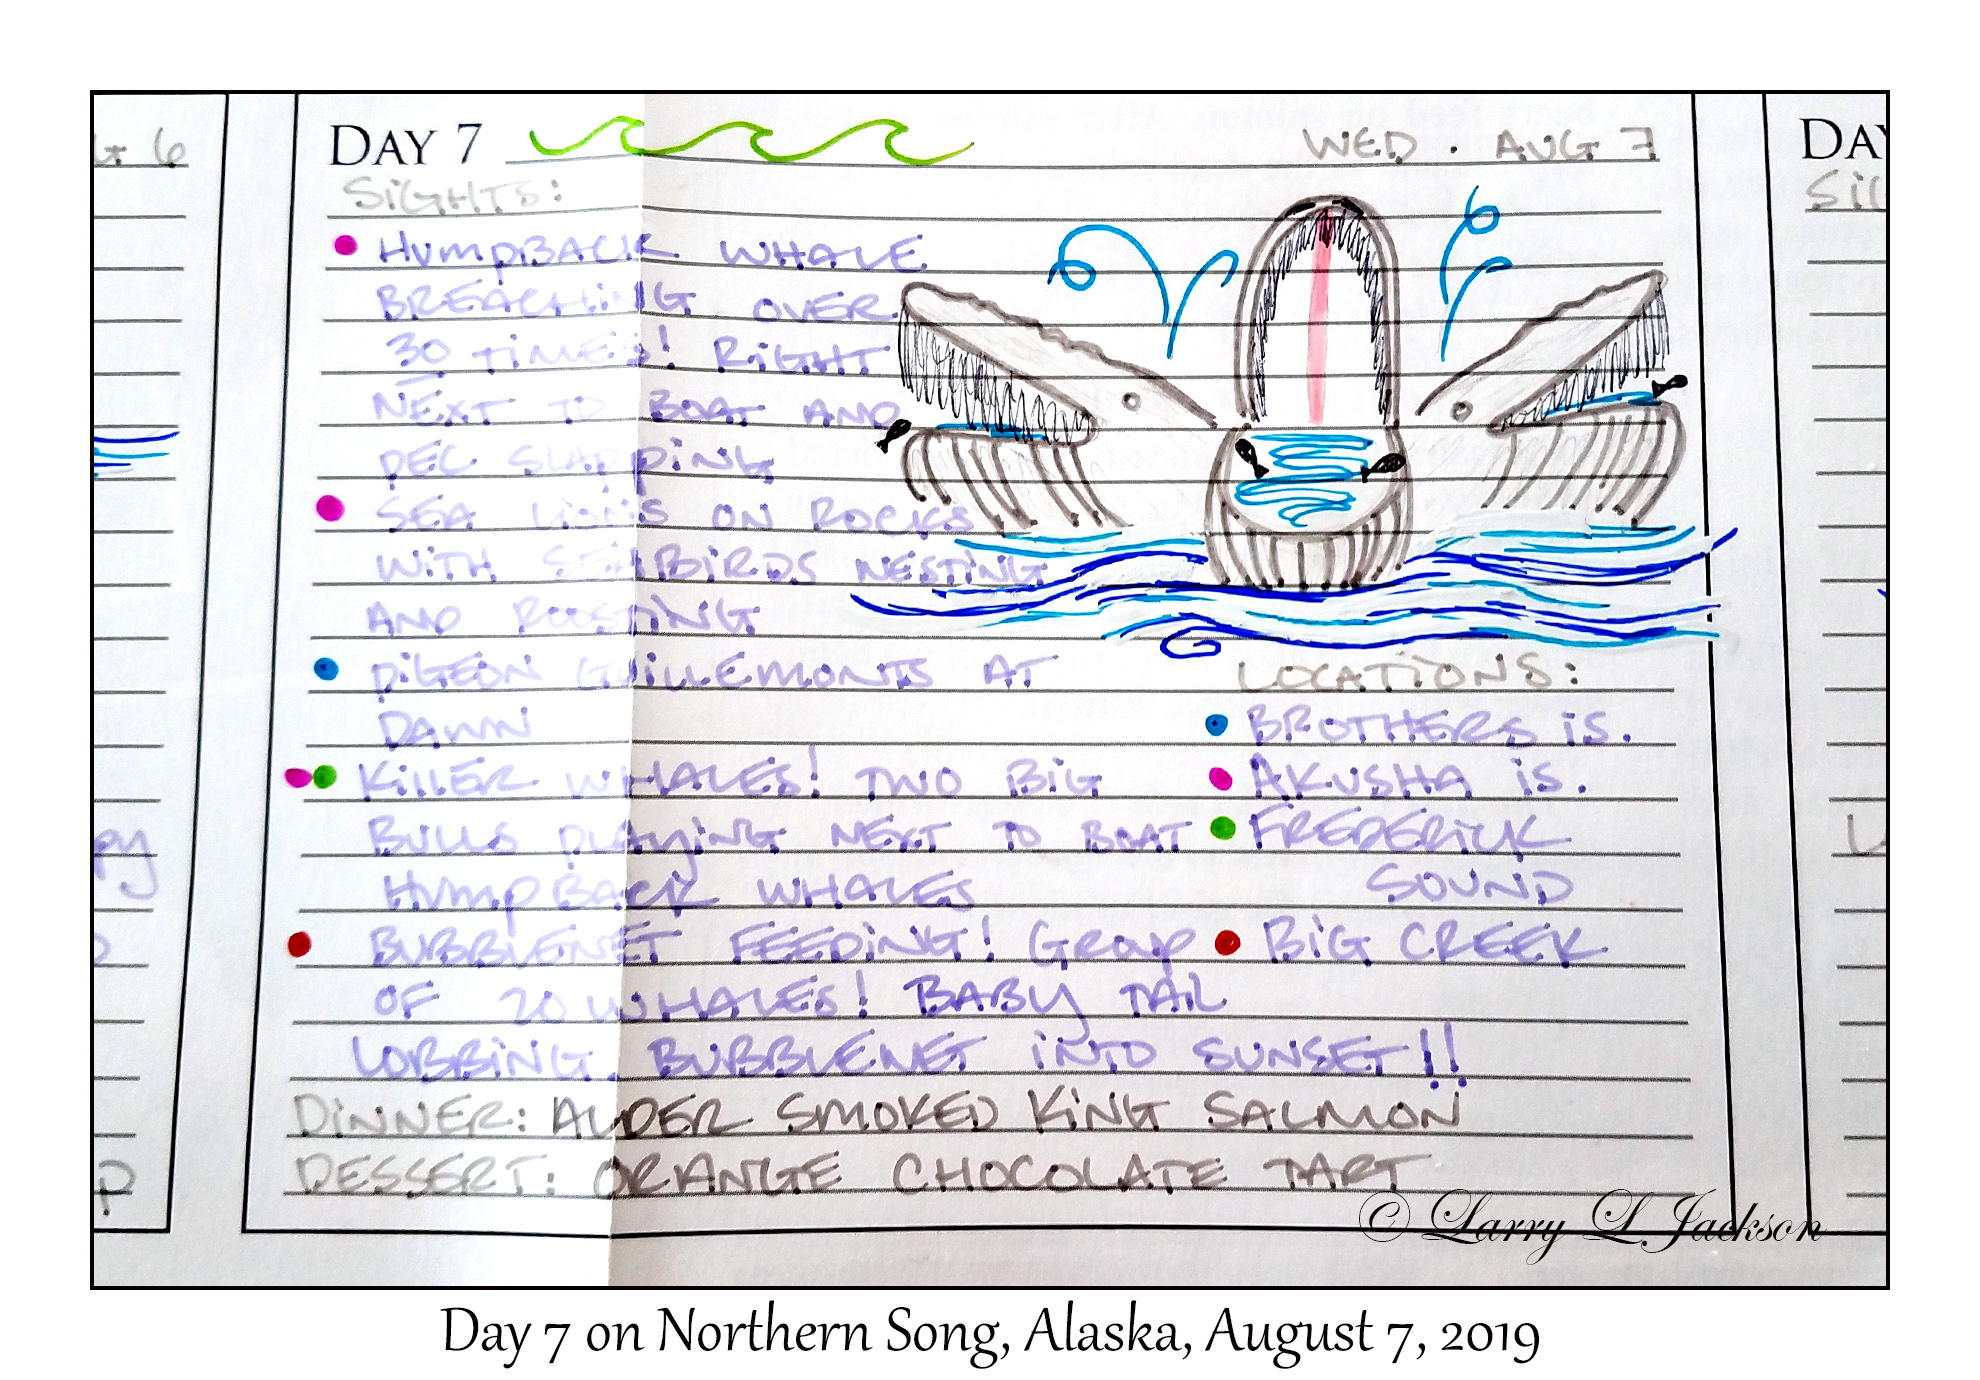 G 6
DAY 7
WED. AUG 7
DAY
SIGHTS:
HUMPBACK WHALE
BREACHING OVER
30 TIMES! RIGHT
NEXT TO BOAT AND
PEC SLAPPING
SEA LIONS ON ROCKS
WITH SEABIRDS NESTING
AND ROOSTING
PIGEON GUILLEMONTS AT
DAWN
KILLER WHALES! TWO BIG
BULLS PLAYING NEXT TO BOAT
HUMPBACK WHALES
BUBBLENET FEEDING! GROUP
OF 20 WHALES! BABY TAIL
LOBBING. BUBBLENET INTO SUNSET!!
LOCATIONS:
BROTHERS IS.
AKUSHA IS.
FREDERICK
SOUND
BIG CREEK
DINNER: ALDER SMOKED KING SALMON
DESSERT: ORANGE CHOCOLATE TART
© Larry L Jackson
Day 7 on Northern Song, Alaska, August 7, 2019